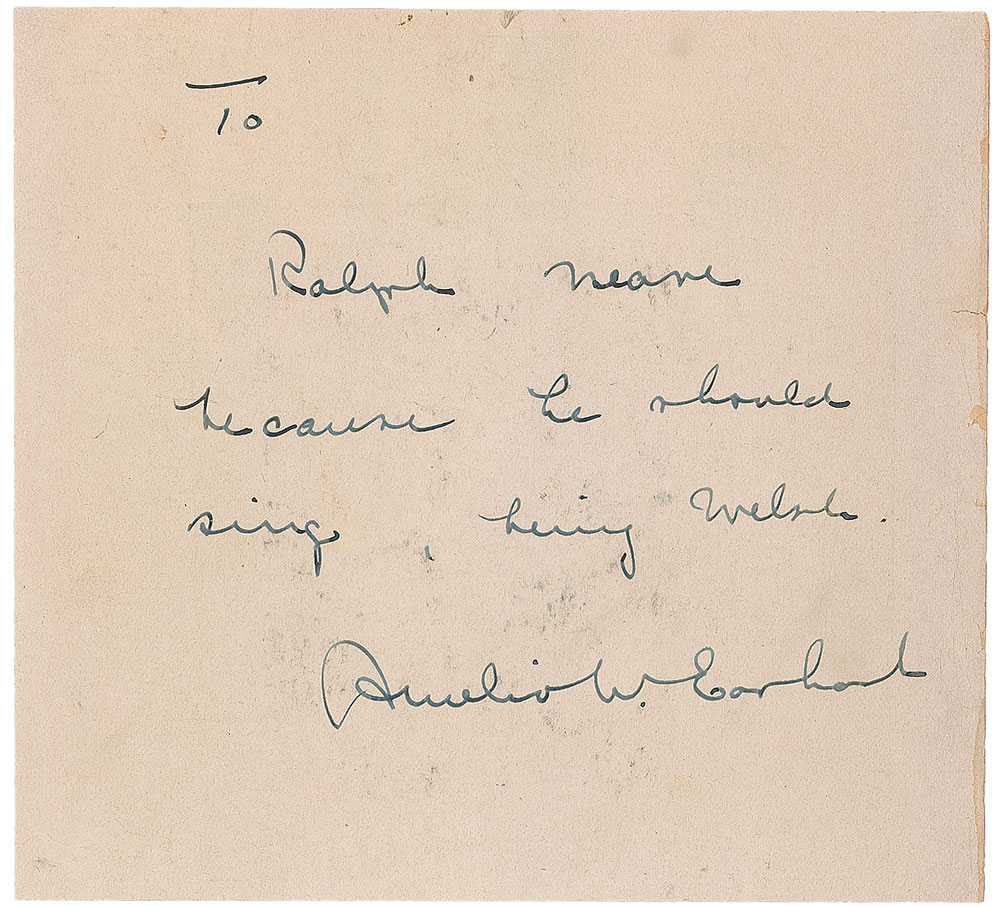 To
Ralph Neave
because he should
sing, being Welsh.
Amelia M. Earhart